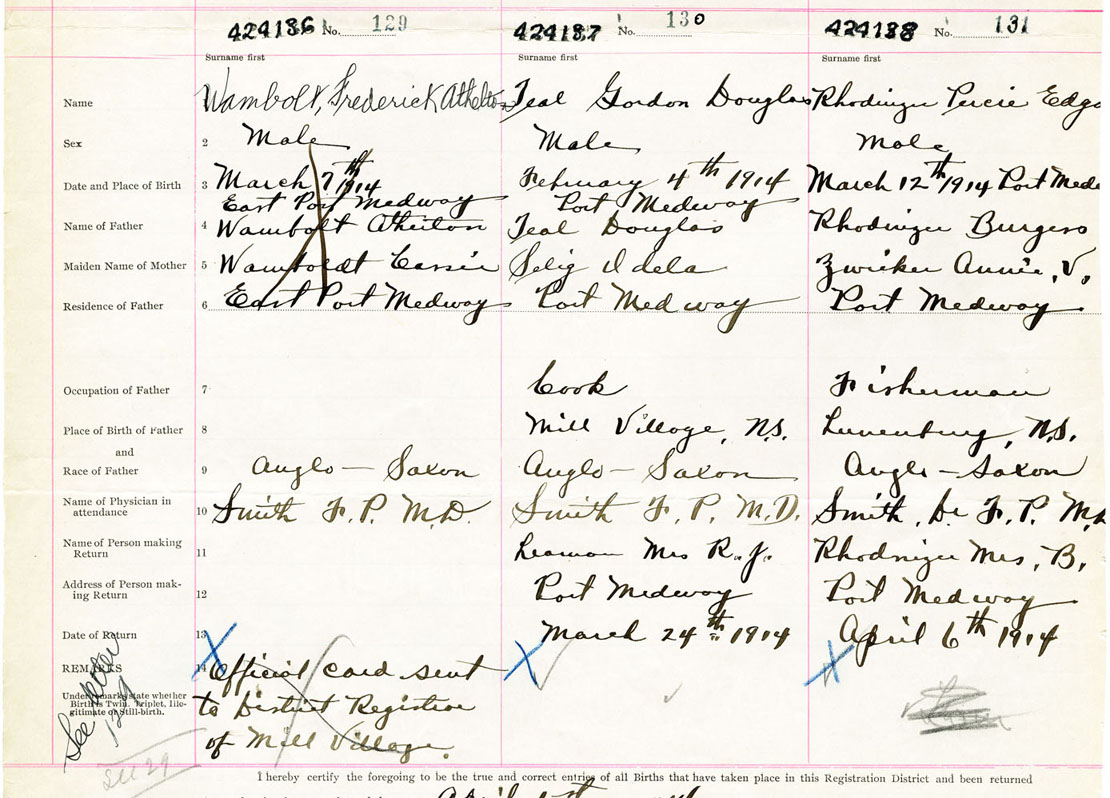 424186 No. 129 424187 No. 130 424188 No. 131
Surname first Surname first Surname first
Name Wambolt, Frederick Athelton Teal Gordon Douglas Rhodinzer Percie Edga
Sex 2 Male Male Male
Date and Place of Birth 3 March 7th 1914 February 4th 1914 March 12th 1914 Port Med
East Port Medway Port Medway
Name of Father 4 Wambolt Athelton Teal Douglas Rhodinzer Burgess
Maiden Name of Mother 5 Wamboldt Cassie Selig Idela Zwicker Annie, V.
Residence of Father 6 East Port Medway Port Medway Port Medway
Occupation of Father 7 Cook Fisherman
Place of Birth of Father 8 Mill Village, N.S. Lunenburg, N.S.
and
Race of Father 9 Anglo - Saxon Anglo - Saxon Anglo - Saxon
Name of Physician in
attendance 10 Smith F. P. M.D. Smith F. P. M.D. Smith, Dr F. P. M.
Name of Person making
Return 11 Leaman Mrs R. J. Rhodnizer Mrs, B.
Address of Person mak-
ing Return 12 Port Medway Port Medway
Date of Return 13 March 24th 1914 April 6th 1914
REMARKS 14 Official card sent
Under remarks state whether
Birth is Twin, Triplet, Ille-
gitimate or Still-birth.
to District Registrar
of Mill Village.
See letter
See 29
I hereby certify the foregoing to be the true and correct entries of all Births that have taken place in this Registration District and been returned